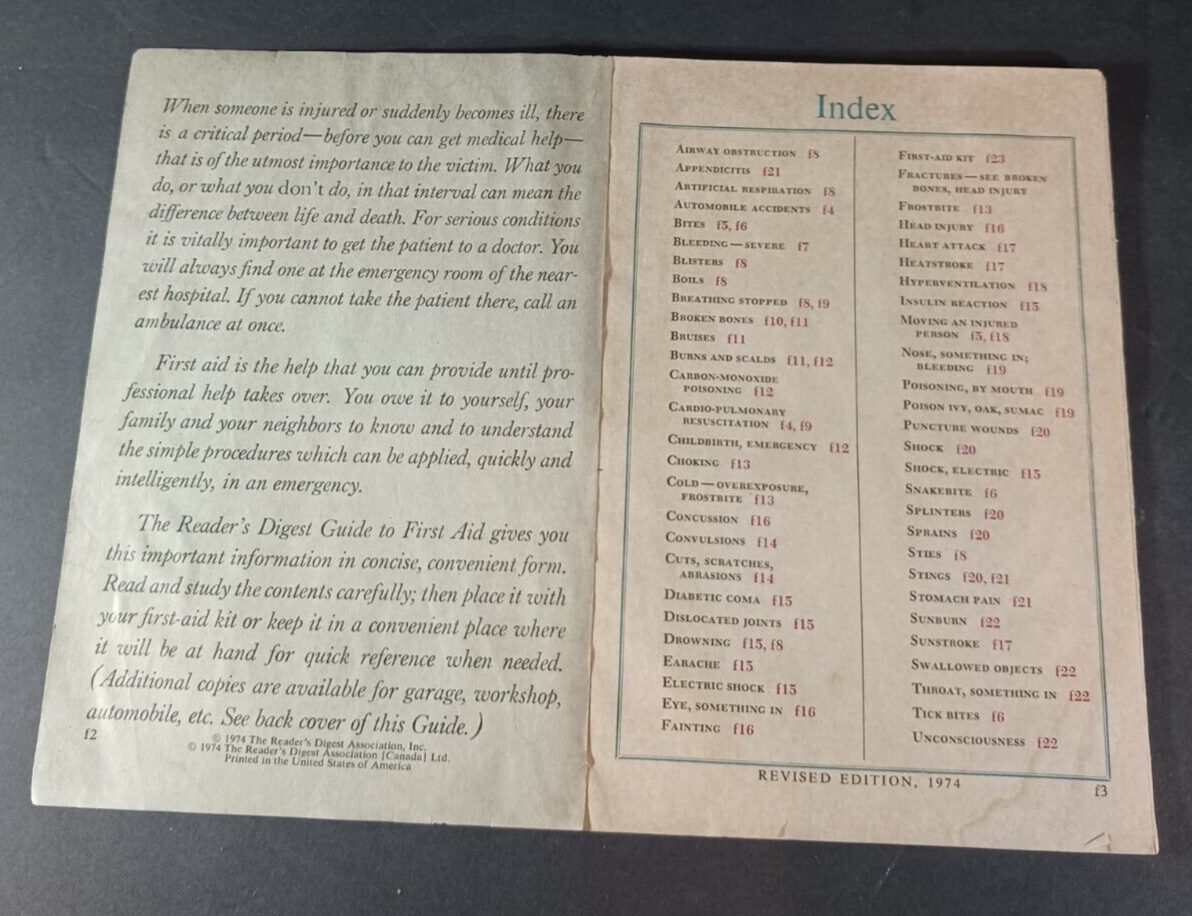 When someone is injured or suddenly becomes ill, there
is a critical period—before you can get medical help—
that is of the utmost importance to the victim. What you
do, or what you don't do, in that interval can mean the
difference between life and death. For serious conditions
it is vitally important to get the patient to a doctor. You
will always find one at the emergency room of the near-
est hospital. If you cannot take the patient there, call an
ambulance at once.
First aid is the help that you can provide until pro-
fessional help takes over. You owe it to yourself, your
family and your neighbors to know and to understand
the simple procedures which can be applied, quickly and
intelligently, in an emergency.
The Reader's Digest Guide to First Aid gives you
this important information in concise, convenient form.
Read and study the contents carefully; then place it with
your first-aid kit or keep it in a convenient place where
it will be at hand for quick reference when needed.
(Additional copies are available for garage, workshop,
automobile, etc. See back cover of this Guide.)
f2
© 1974 The Reader's Digest Association, Inc.
© 1974 The Reader's Digest Association [Canada] Ltd.
Printed in the United States of America
Index
AIRWAY OBSTRUCTION f8
APPENDICITIS f21
ARTIFICIAL RESPIRATION f8
AUTOMOBILE ACCIDENTS f4
BITES f5, f6
BLEEDING—SEVERE f7
BLISTERS f8
BOILS f8
BREATHING STOPPED f8, f9
BROKEN BONES f10, f11
BRUISES f11
BURNS AND SCALDS f11, f12
CARBON-MONOXIDE
POISONING f12
CARDIO-PULMONARY
RESUSCITATION f4, f9
CHILDBIRTH, EMERGENCY f12
CHOKING f13
COLD—OVEREXPOSURE,
FROSTBITE f13
CONCUSSION f16
CONVULSIONS f14
CUTS, SCRATCHES,
ABRASIONS f14
DIABETIC COMA f15
DISLOCATED JOINTS f15
DROWNING f15, f8
EARACHE f15
ELECTRIC SHOCK f15
EYE, SOMETHING IN f16
FAINTING f16
FIRST-AID KIT f23
FRACTURES—SEE BROKEN
BONES, HEAD INJURY
FROSTBITE f13
HEAD INJURY f16
HEART ATTACK f17
HEATSTROKE f17
HYPERVENTILATION f18
INSULIN REACTION f15
MOVING AN INJURED
PERSON f5, f18
NOSE, SOMETHING IN;
BLEEDING f19
POISONING, BY MOUTH f19
POISON IVY, OAK, SUMAC f19
PUNCTURE WOUNDS f20
SHOCK f20
SHOCK, ELECTRIC f15
SNAKEBITE f6
SPLINTERS f20
SPRAINS f20
STIES f8
STINGS f20, f21
STOMACH PAIN f21
SUNBURN f22
SUNSTROKE f17
SWALLOWED OBJECTS f22
THROAT, SOMETHING IN f22
TICK BITES f6
UNCONSCIOUSNESS f22
REVISED EDITION, 1974
f3